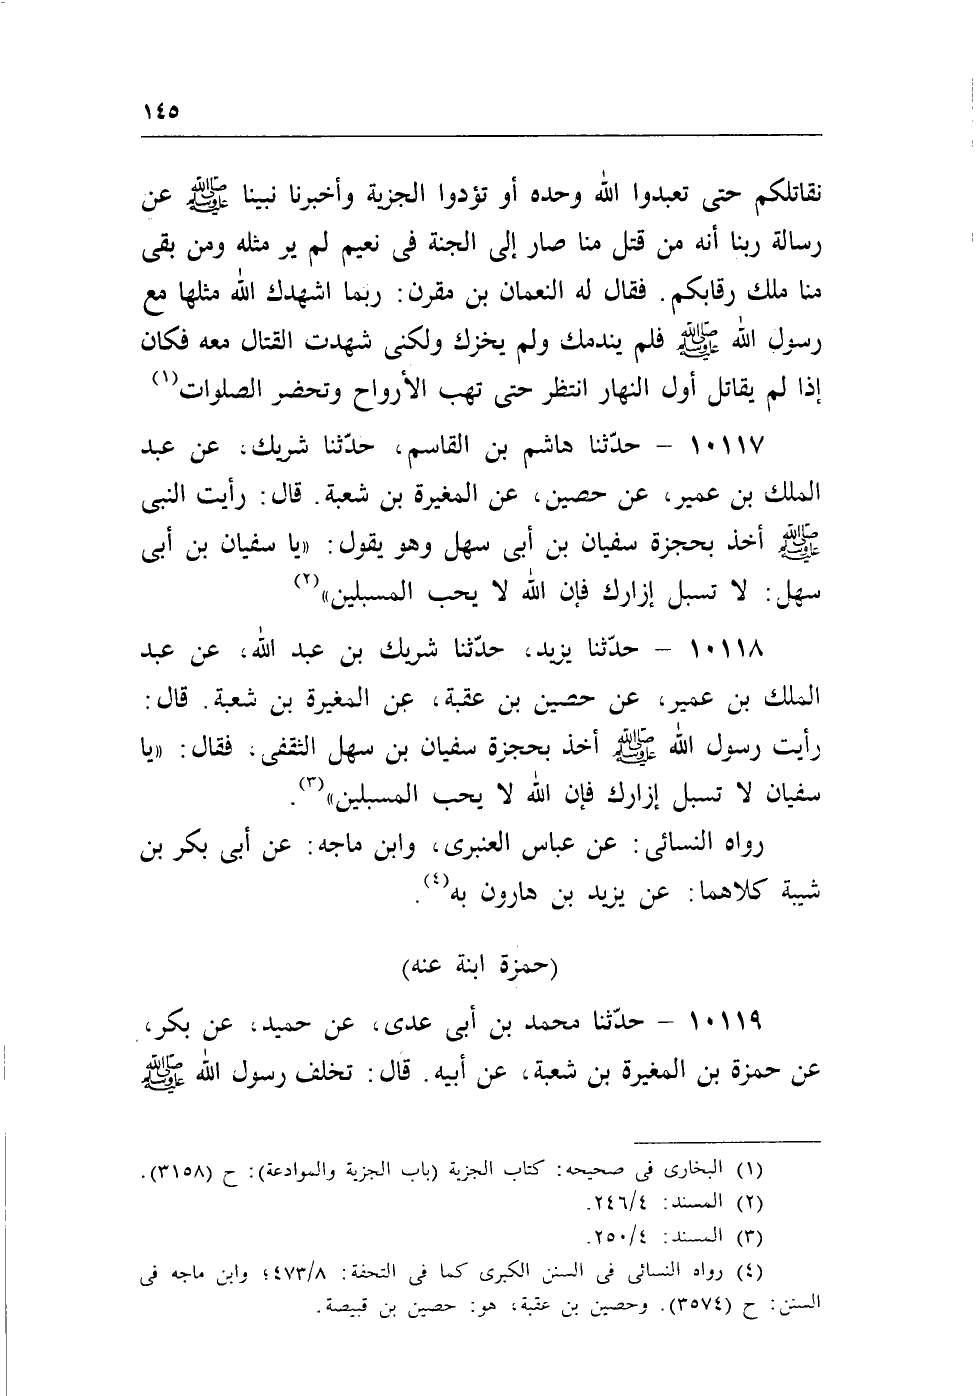 ١٤٥
نقاتلكم حتى تعبدوا الله وحده أو تؤدوا الجزية وأخبرنا نبينا ﷺ عن
رسالة ربنا أنه من قتل منا صار إلى الجنة فى نعيم لم ير مثله ومن بقى
منا ملك رقابكم. فقال له النعمان بن مقرن: ربما اشهدك الله مثلها مع
رسول الله ﷺ فلم يندمك ولم يخزك ولكنى شهدت القتال معه فكان
إذا لم يقاتل أول النهار انتظر حتى تهب الأرواح وتحضر الصلوات(١)
١٠١١٧ – حدّثنا هاشم بن القاسم، حدّثنا شريك، عن عبد
الملك بن عمير، عن حصين، عن المغيرة بن شعبة. قال: رأيت النبى
ﷺ أخذ بحجزة سفيان بن أبى سهل وهو يقول: «يا سفيان بن أبى
سهل: لا تسبل إزارك فإن الله لا يحب المسبلين»(٢)
١٠١١٨ – حدّثنا يزيد، حدّثنا شريك بن عبد الله، عن عبد
الملك بن عمير، عن حصين بن عقبة، عن المغيرة بن شعبة. قال:
رأيت رسول الله ﷺ أخذ بحجزة سفيان بن سهل الثقفى، فقال: «يا
سفيان لا تسبل إزارك فإن الله لا يحب المسبلين»(٣).
رواه النسائى: عن عباس العنبرى، وابن ماجه: عن أبى بكر بن
شيبة كلاهما: عن يزيد بن هارون به(٤).
(حمزة ابنة عنه)
١٠١١٩ – حدّثنا محمد بن أبى عدى، عن حميد، عن بكر،
عن حمزة بن المغيرة بن شعبة، عن أبيه. قال: تخلف رسول الله ﷺ
(١) البخارى فى صحيحه: كتاب الجزية (باب الجزية والموادعة): ح (٣١٥٨).
(٢) المسند: ٢٤٦/٤.
(٣) المسند: ٢٥٠/٤.
(٤) رواه النسائى فى السنن الكبرى كما فى التحفة: ٤٧٣/٨؛ وابن ماجه فى
السنن: ح (٣٥٧٤). وحصين بن عقبة، هو: حصين بن قبيصة.